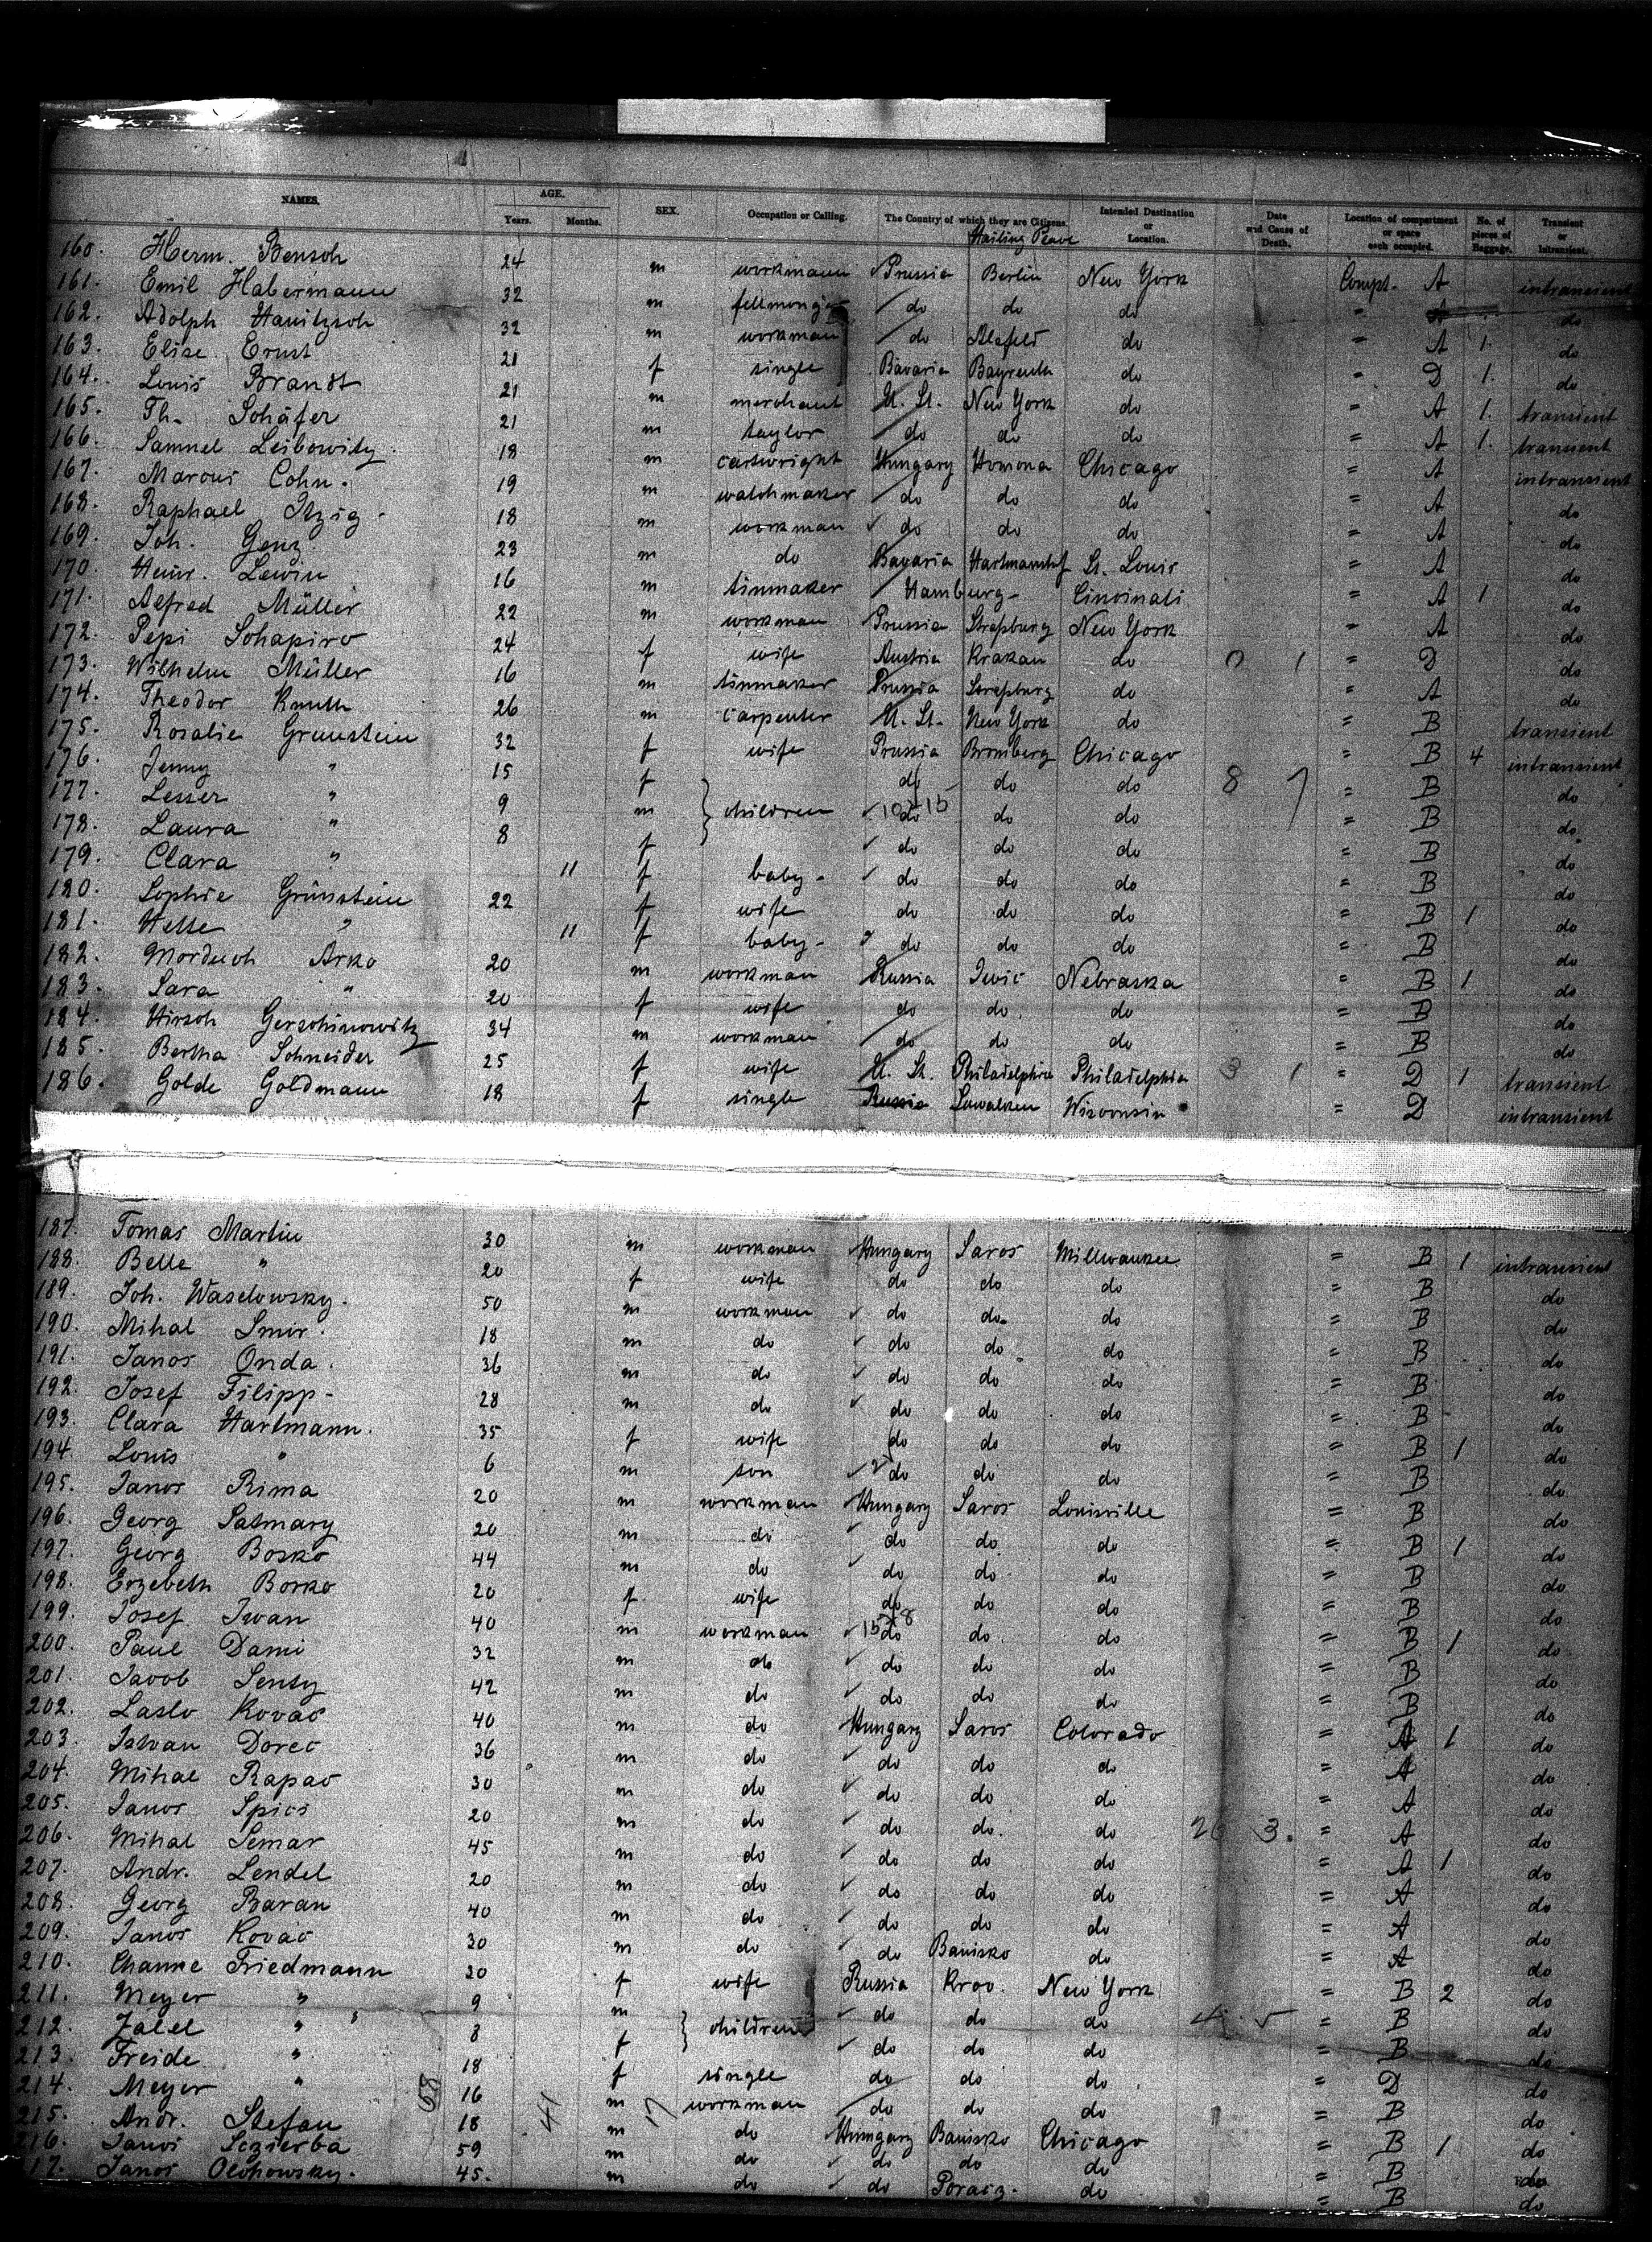 NAMES. AGE. Years. Months. SEX. Occupation or Calling. The Country of which they are Citizens. Intended Destination or Location. Date and Cause of Death. Location of compartment or space each occupied. No. of pieces of Baggage. Transient or Intransient.
160. Herm. Bensch 24 m workmann Prussia Berlin New York Compt. A intransient
161. Emil Habermann 32 m fellmonger do do do " A do
162. Adolph Hanitzsch 32 m workman do Alefeld do " A 1. do
163. Elise Ernst 21 f single Bavaria Bayreuth do " D 1. do
164. Louis Brandt 21 m merchant U. St. New York do " A 1. transient
165. Th. Schäfer 21 m taylor do do do " A 1. transient
166. Samuel Leibowitz 18 m cartwright Hungary Homona Chicago " A intransient
167. Marcus Cohn. 19 m watchmaker do do do " A do
168. Raphael Itzig 18 m workman do do do " A do
169. Joh. Genz 23 m do Bavaria Hartmanshof St. Louis " A do
170. Heinr. Lewin 16 m tinmaker Hamburg Cincinati " A 1 do
171. Alfred Müller 22 m workman Prussia Straßburg New York " A do
172. Pepi Schapiro 24 f wife Austria Krakau do 0 1 " D do
173. Wilhelm Müller 16 m tinmaker Prussia Straßburg do " A do
174. Theodor Knuth 26 m carpenter U. St. New York do " B transient
175. Rosalie Grunstein 32 f wife Prussia Bromberg Chicago " B 4 intransient
176. Jenny " 15 f do do do 8 7 " B do
177. Lesser " 9 m children do do do " B do
178. Laura " 8 f do do do " B do
179. Clara " 11 f baby do do do " B do
180. Sophie Grünstein 22 f wife do do do " B 1 do
181. Helle " 11 f baby do do do " B do
182. Morduch Arko 20 m workman Russia Iwic Nebraska " B 1 do
183. Sara " 20 f wife do do do " B do
184. Hirsch Gerschinowitz 34 m workman do do do " B do
185. Bertha Schneider 25 f wife U. St. Philadelphia Philadelphia 3 1 " D 1 transient
186. Golde Goldmann 18 f single Russia Suwalken Wisconsin " D intransient
187. Tomas Martin 30 m workman Hungary Saros Millwaukee " B 1 intransient
188. Belle " 20 f wife do do do " B do
189. Joh. Waselowsky. 50 m workman do do do " B do
190. Mihal Smir. 18 m do do do do " B do
191. Janos Onda. 36 m do do do do " B do
192. Josef Filipp 28 m do do do do " B do
193. Clara Hartmann. 35 f wife do do do " B 1 do
194. Louis " 6 m son do do do " B do
195. Janos Rima 20 m workman Hungary Saros Louisville " B do
196. Georg Satmary 20 m do do do do " B 1 do
197. Georg Bosko 44 m do do do do " B do
198. Erzebeth Borko 20 f wife do do do " B do
199. Josef Iwan 40 m workman do do do " B 1 do
200. Paul Dami 32 m do do do do " B do
201. Jacob Senty 42 m do do do do " B do
202. Laslo Kovac 40 m do Hungary Saros Colorado " A 1 do
203. Istvan Dorec 36 m do do do do " A do
204. Mihal Rapac 30 m do do do do " A do
205. Janos Spics 20 m do do do do 26 3. " A do
206. Mihal Semar 45 m do do do do " A 1 do
207. Andr. Lendel 20 m do do do do " A do
208. Georg Baran 40 m do do do do " A do
209. Janos Kovac 30 m do do Banisko do " A do
210. Channe Friedmann 20 f wife Russia Krov. New York " B 2 do
211. Meyer " 9 m children do do do 4 " B do
212. Zalel " 8 f do do do " B do
213. Freide " 18 f single do do do " D do
214. Meyer " 16 m workman do do do " B do
215. Andr. Stefan 18 m do Hungary Banisko Chicago " B 1 do
216. Janos Sczierba 59 m do do do do " B do
17. Janos Olchowsky. 45. m do do Poracz. do " B do
68 41 17